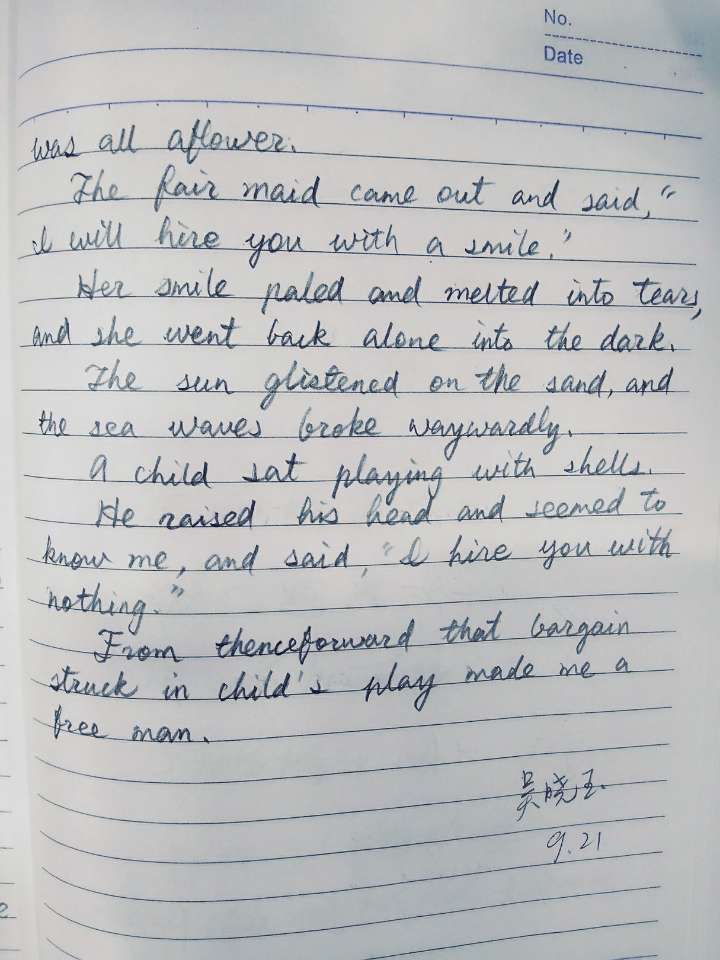 No.
Date
was all aflower.
The fair maid came out and said, "
I will hire you with a smile."
Her smile paled and melted into tears,
and she went back alone into the dark.
The sun glistened on the sand, and
the sea waves broke waywardly.
A child sat playing with shells.
He raised his head and seemed to
know me, and said, "I hire you with
nothing."
From thenceforward that bargain
struck in child's play made me a
free man.
吴晓玉
9.21